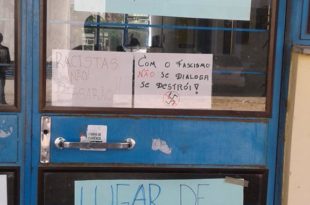 RACISTAS
NÃO
PASSARÃO
COM O FASCISMO
NÃO SE DIALOGA
SE DESTRÓI!
LUGAR DE